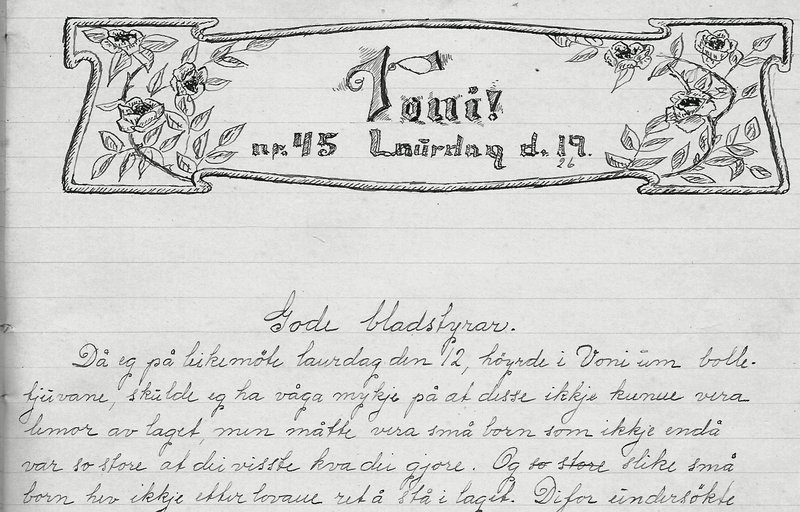 Voni!
nr. 45 Laurdag d. 19.
26
Gode bladstyrar.
Då eg på leikemöte laurdag den 12, höyrde i Voni um bolle-
tjuvane, skulde eg ha våga mykje på at desse ikkje kunne vera
lemor av laget, men måtte vera små born som ikkje endå
var so store at dei visste kva dei gjore. Og so store slike små
born hev ikkje etter lovane ret å stå i laget. Difor undersökte